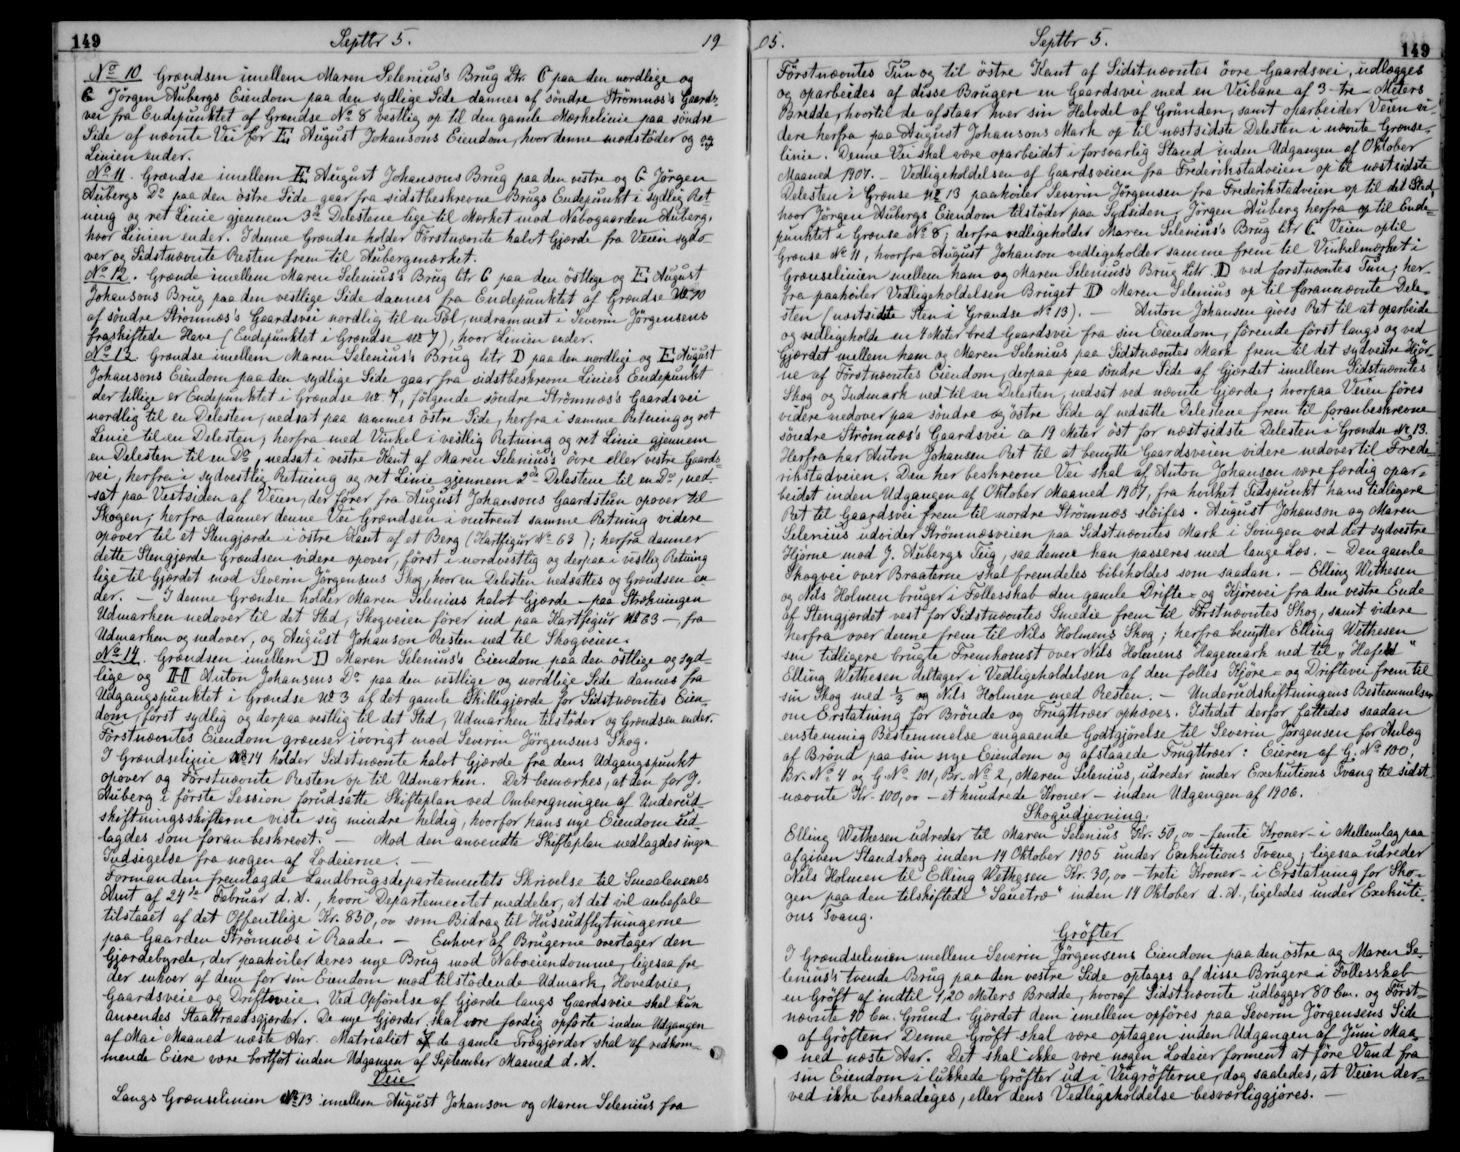 149 Septbr 5. 19
No 10 Grændsen imellem Maren Selenius's Brug Ltr. C paa den nordlige og
G Jörgen Aubergs Eiendom paa den sydlige Side dannes af söndre Strömnæs's Gaards-
vei fra Endepunktet af Grændse No 8 vestlig op til den gamle Mærkelinie paa söndre
Side af nævnte Vei for E August Johansons Eiendom, hvor denne modstöder og og
Linien ender.
No 11. Grændse imellem E August Johansons Brug paa den vestre og G Jörgen
Aubergs Do paa den östre Side gaar fra sidstbeskrevne Brugs Endepunkt i sydlig Ret-
ning og ret Linie gjennem 3de Delestene lige til Mærket mod Nabogaarden Auberg,
hvor Linien ender. I denne Grændse holder Förstnævnte halvt Gjærde fra Veien sydo-
ver og Sidstnævnte Resten frem til Aubergmærket.
No 12. Grænde imellem Maren Selenius's Brug ltr C paa den östlige og E August
Johansons Brug paa den vestlige Side dannes fra Endepunktet af Grændse No 10
af söndre Strömnæs's Gaardsvei nordlig til en Pæl, nedrammet i Severin Jörgensens
fraskiftede Have (Endepunktet i Grændse No 7), hvor Linien ender.
No 13. Grændse imellem Maren Selenius's Brug ltr D paa den nordlige og E August
Johansons Eiendom paa den sydlige Side gaar fra sidstbeskrevne Linies Endepunkt
der tillige er Endepunktet i Grændse No 7, fölgende söndre Strömnæs's Gaardsvei
nordlig til en Delesten, nedsat paa sammes östre Side, herfra i samme Retning og ret
Linie til en Delesten; herfra med Vinkel i vestlig Retning og ret Linie gjennem
en Delesten til en Do, nedsat i vestre Kant af Maren Selenius's övre eller vestre Gaards-
vei, herfra i sydvestlig Retning og ret Linie gjennem 2de Delestene til en Do, ned-
sat paa Vestsiden af Veien, der förer fra August Johansons Gaardstun opover til
Skogen; herfra danner denne Vei Grændsen i omtrent samme Retning videre
opover til et Stengjærde i östre Kant af et Berg (Kartfigur No 63); herfra danner
dette Stengjærde Grændsen videre opover, först i nordvestlig og derpaa i vestlig Retning
lige til Gjærdet mod Severin Jörgensens Skog, hvor en Delesten nedsattes og Grændsen en-
der. — I denne Grændse holder Maren Selenius halvt Gjærde — paa Strækningen
Udmarken nedover til det Sted, Skogveien förer ind paa Kartfigur No 63 —, fra
Udmarken og nedover, og August Johanson Resten ned til Skogveien.
No 14. Grændsen imellem D Maren Selenius's Eiendom paa den östlige og syd-
lige og H Anton Johansens Do paa den vestlige og nordlige Side dannes fra
Udgangspunktet i Grændse No 3 af det gamle Skillegjærde for Sidstnævntes Eien-
dom, först sydlig og derpaa vestlig til det Sted, Udmarken tilstöder og Grændsen ender.
Förstnævntes Eiendom grænser iövrigt mod Severin Jörgensens Skog.
I Grændselinie No 14 holder Sidstnævnte halvt Gjærde fra dens Udgangspunkt
opover og Förstnævnte Resten op til Udmarken. Det bemærkes, at den for J.
Auberg i förste Session forudsatte Skifteplan ved Omberegningen af Underud-
skiftningsskifterne viste sig mindre heldig, hvorfor hans nye Eiendom ud-
lagdes som foran beskrevet. — Mod den anvendte Skifteplan nedlagdes ingen
Indsigelse fra nogen af Lodeierne. —
Formanden fremlagde Landbrugsdepartementets Skrivelse til Smaalenenes
Amt af 24de Februar d. A., hvori Departementet meddeler, at det vil anbefale
tilstaaet af det Offentlige Kr. 830,00 som Bidrag til Huseudflytningerne
paa Gaarden Strömnæs i Raade. — Enhver af Brugerne overtager den
Gjærdebyrde, der paahviler deres nye Brug mod Naboeiendomme, ligesaa fre-
der enhver af dem for sin Eiendom mod tilstödende Udmark, Hovedveie,
Gaardsveie og Driftsveie. Ved Opförelse af Gjærde langs Gaardsveie skal kun
anvendes Staaltraadsgjærder. De nye Gjærder skal være færdig opförte inden Udgangen
af Mai Maaned næste Aar. Matrialiet af de gamle Trægjærder skal af vedkom-
mende Eiere være bortfört inden Udgangen af September Maaned d. A.
Veie
Langs Grænselinien No 13 imellem August Johanson og Maren Selenius fra
05. Septbr 5. 149
Förstnævntes Tun og til östre Kant af Sidstnævntes övre Gaardsvei, udlægges
og oparbeides af disse Brugere en Gaardsvei med en Veibane af 3 - tre - Meters
Bredde, hvortil de afstaar hver sin Halvdel af Grunden, samt oparbeider Veien vi-
dere herfra paa August Johansons Mark op til næstsidste Delesten i nævnte Grænse-
linie. Denne Vei skal være oparbeidet i forsvarlig Stand inden Udgangen af Oktober
Maaned 1907. — Vedligeholdelsen af Gaardsveien fra Frederikstadveien op til næstsidste
Delesten i Grænse No 13 paahviler Severin Jörgensen fra Frederikstadveien op til det Sted,
hvor Jörgen Aubergs Eiendom tilstöder paa Sydsiden, Jörgen Auberg herfra op til Ende-
punktet i Grænse No 8; derfra vedligeholder Maren Selenius's Brug ltr C Veien optil
Grænse No 11, hvorfra August Johanson vedligeholder samme frem til Vinkelmærket i
Grænselinien mellem ham og Maren Selenius's Brug ltr. D ved forstnævntes Tun; her-
fra paahviler Vedligeholdelsen Bruget D Maren Selenius op til forannævnte Dele-
sten (næstsidste Sten i Grændse No 13). — Anton Johansen gives Ret til at oparbeide
og vedligeholde en 4 Meter bred Gaardsvei fra sin Eiendom, förende först langs og ved
Gjærdet mellem ham og Maren Selenius paa Sidstnævntes Mark frem til det sydvestre Hjör-
ne af Förstnævntes Eiendom, derpaa paa söndre Side af Gjærdet imellem Sidstnævntes
Skog og Indmark ned til en Delesten, nedsat ved nævnte Gjærde; hvorpaa Veien föres
videre nedover paa söndre og östre Side af nedsatte Delestene frem til foranbeskrevne
söndre Strömnæs's Gaardsvei ca 19 Meter öst for næstsidste Delesten i Grændse No 13.
Herfra har Anton Johansen Ret til at benytte Gaardsveien videre nedover til Frede-
rikstadveien. Den her beskrevne Vei skal af Anton Johanson være færdig opar-
beidet inden Udgangen af Oktober Maaned 1907, fra hvilket Tidspunkt hans tidligere
Ret til Gaardsvei frem til nordre Strömnæs slöifes. August Johanson og Maren
Selenius udvider Strömnæsveien paa Sidstnævntes Mark i Svingen ved det sydvestre
Hjörne mod J. Aubergs Teig, saa denne kan passeres med lange Læs. — Den gamle
Skogvei over Braaterne skal fremdeles bibeholdes som saadan. — Elling Wethesen
og Nils Holmen bruger i Fællesskab den gamle Drifte- og Kjörevei fra den vestre Ende
af Stengjærdet vest for Sidstnævntes Smedie frem til Förstnævntes Skog, samt videre
herfra over denne frem til Nils Holmens Skog; herfra benytter Elling Wethesen
sin tidligere brugte Fremkomst over Nils Holmens Hagemark ned til "Hafeld"
Elling Wethesen deltager i Vedligeholdelsen af den fælles Kjöre- og Driftevei frem til
sin Skog med 1/3 og Nils Holmen med Resten. — Underudskiftningens Bestemmelser
om Erstatning for Brönde og Frugttræer ophæves. Istedet derfor fattedes saadan
enstemmig Bestemmelse angaaende Godtgjörelse til Severin Jörgensen for Anlæg
af Brönd paa sin nye Eiendom og afstaaede Frugttræer: Eieren af G. No 100,
Br. No 4 og G. No 101, Br. No 2, Maren Selenius, udreder under Exekutions Tvang til sidst-
nævnte Kr. 100,00 — et hundrede Kroner — inden Udgangen af 1906.
Skogudjevning.
Elling Wethesen udreder til Maren Selenius Kr. 50,00 — femti Kroner — i Mellemlag paa
afgiven Standskog inden 14 Oktober 1905 under Exekutions Tvang; ligesaa udreder
Nils Holmen til Elling Wethesen Kr. 30,00 — treti Kroner — i Erstatning for Sko-
gen paa den tilskiftede "Sauetræ" inden 14 Oktober d. A., ligeledes under Exekuti-
ons Tvang.
Gröfter
I Grændselinien mellem Severin Jörgensens Eiendom paa den östre og Maren Se-
lenius's tvende Brug paa den vestre Side optages af disse Brugere i Fællesskab
en Gröft af indtil 1,20 Meters Bredde, hvoraf Sidstnævnte udlægger 80 Cm. og Först-
nævnte 40 Cm. Grund. Gjærdet dem imellem opföres paa Severin Jörgensens Side
af Gröften. Denne Gröft skal være optagen inden Udgangen af Juni Maa-
ned næste Aar. Det skal ikke være nogen Lodeier forment at före Vand fra
sin Eiendom i lukkede Gröfter ud i Veigröfterne, dog saaledes, at Veien der-
ved ikke beskadiges, eller dens Vedligeholdelse besværliggjöres. —